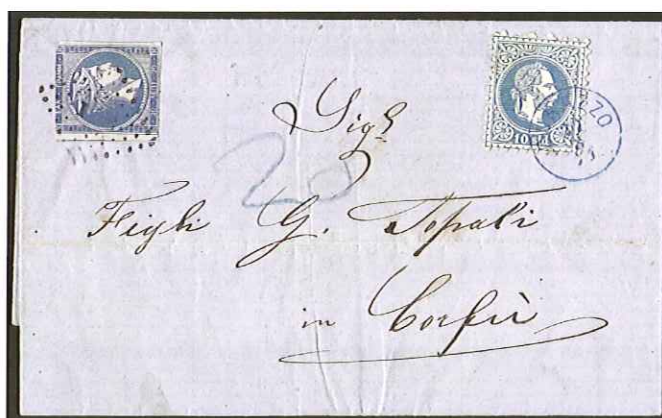 Sigs
20
Figli G. Topali
in Corfù
10 sld